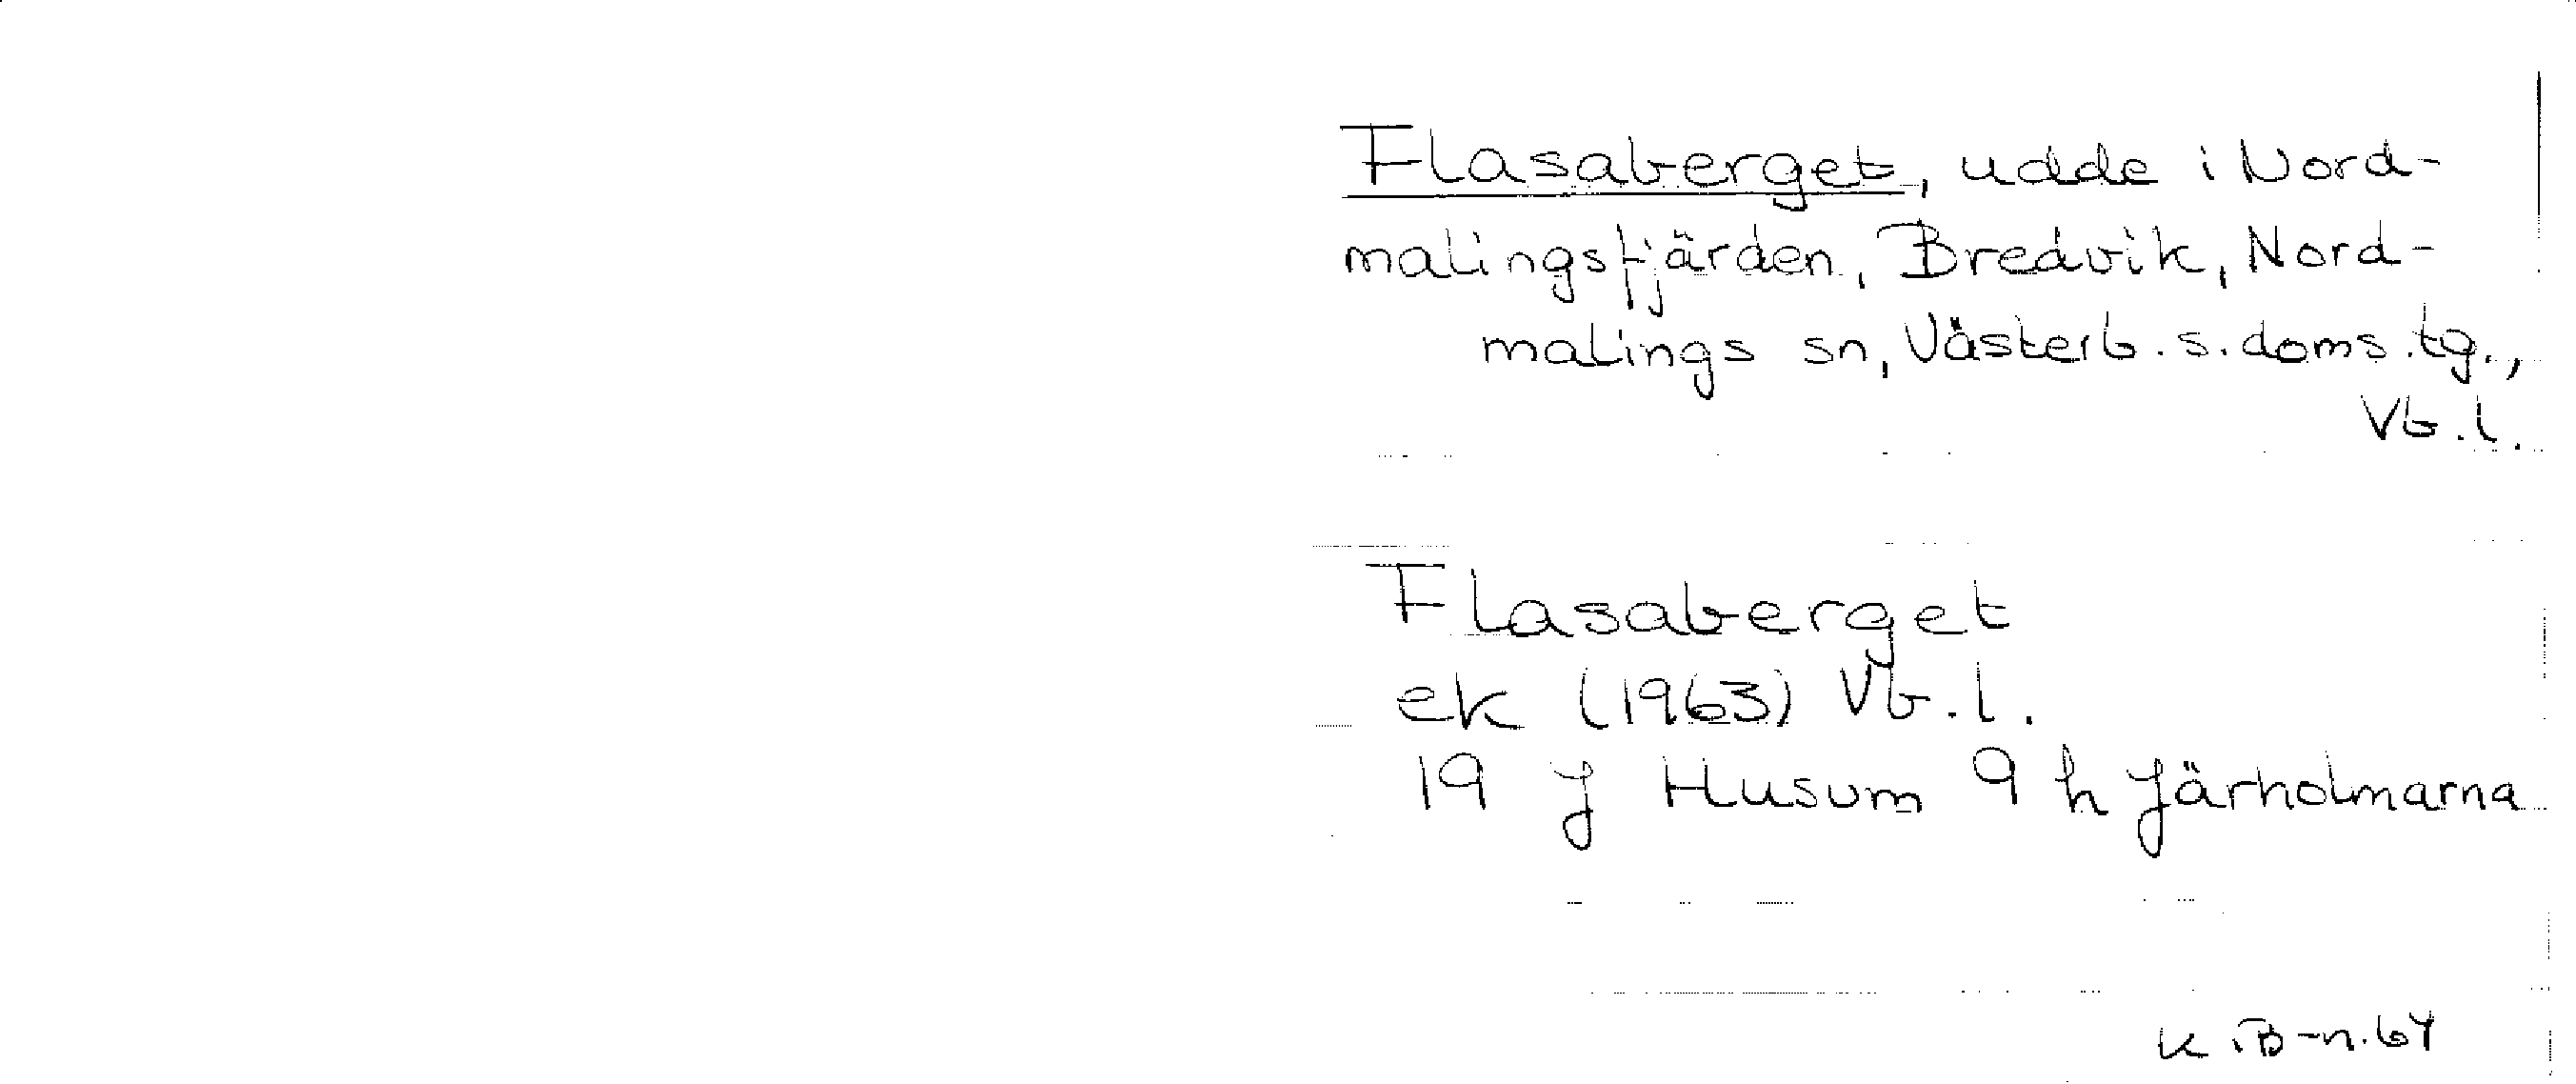 Flasaberget, udde i Nord-
malingsfjärden, Bredvik, Nord-
malings sn, Västerb. s. doms. tg.,
Vb. l.
Flasaberget
ek (1963) Vb. l.
19 J Husum 9 h Järholmarna
K. B-n. 64